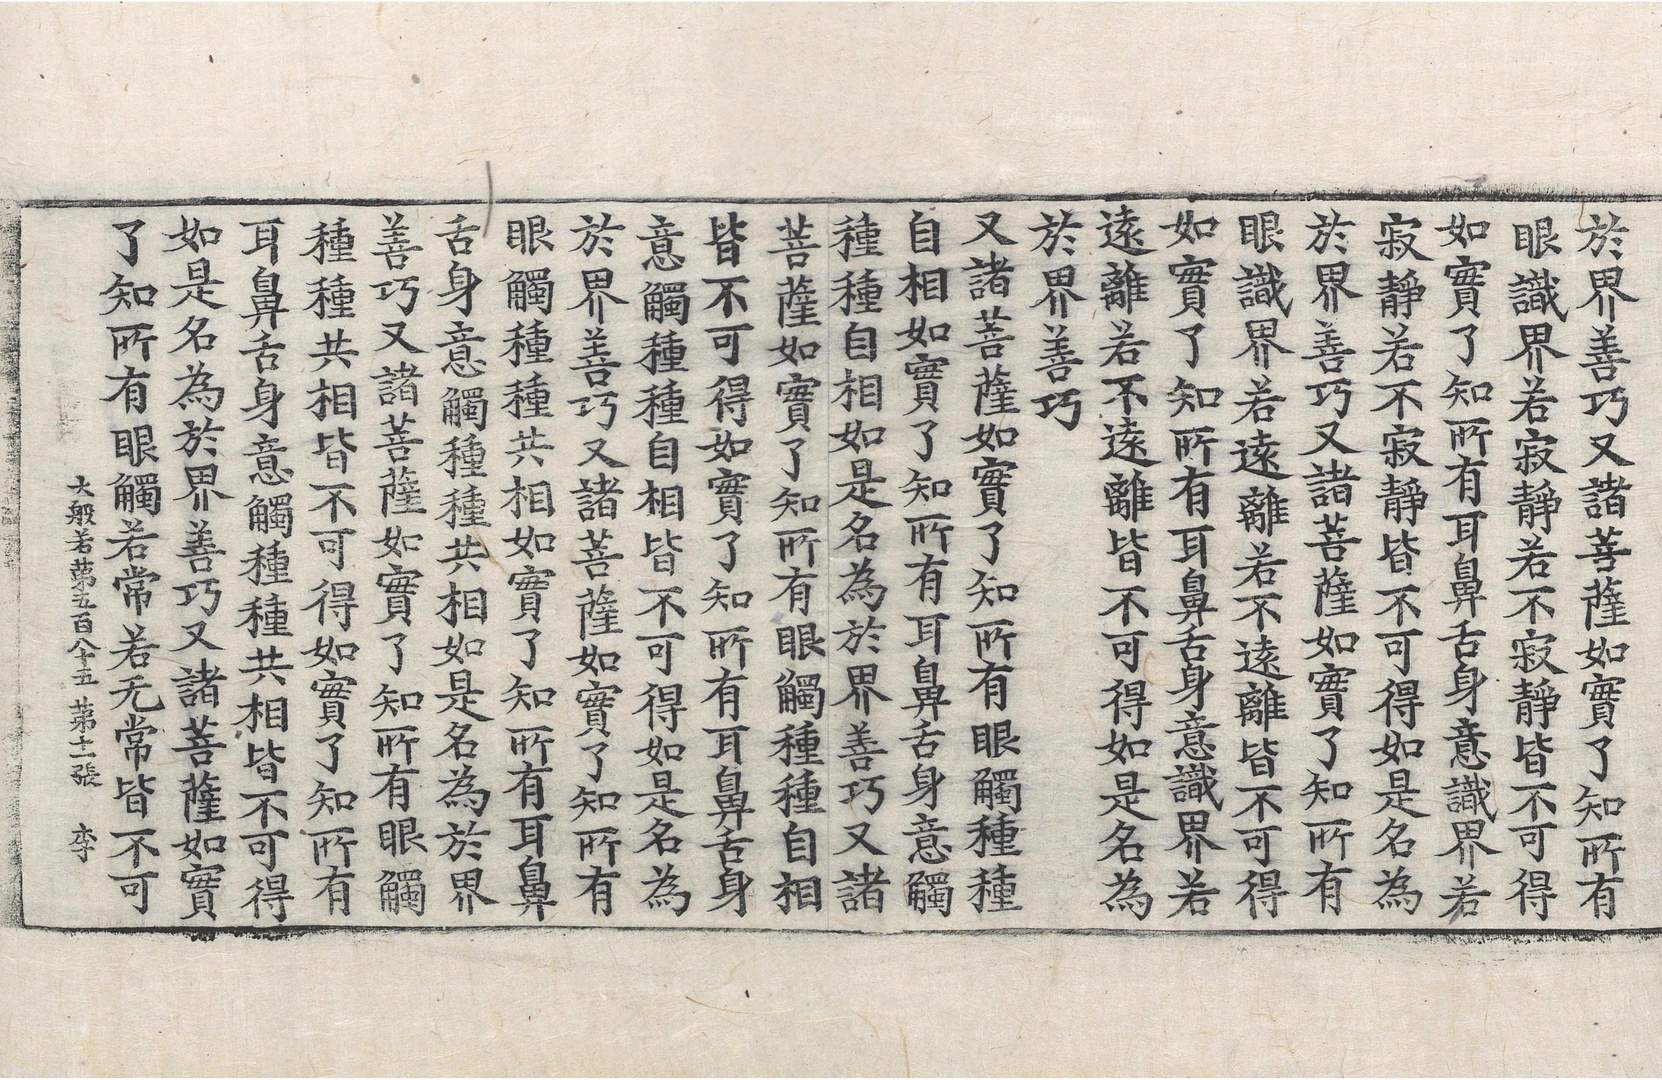 於界善巧又諸菩薩如實了知所有
眼識界若寂靜若不寂靜皆不可得
如實了知所有耳鼻舌身意識界若
寂靜若不寂靜皆不可得如是名為
於界善巧又諸菩薩如實了知所有
眼識界若遠離若不遠離皆不可得
如實了知所有耳鼻舌身意識界若
遠離若不遠離皆不可得如是名為
於界善巧
又諸菩薩如實了知所有眼觸種種
自相如實了知所有耳鼻舌身意觸
種種自相如是名為於界善巧又諸
菩薩如實了知所有眼觸種種自相
皆不可得如實了知所有耳鼻舌身
意觸種種自相皆不可得如是名為
於界善巧又諸菩薩如實了知所有
眼觸種種共相如實了知所有耳鼻
舌身意觸種種共相如是名為於界
善巧又諸菩薩如實了知所有眼觸
種種共相皆不可得如實了知所有
耳鼻舌身意觸種種共相皆不可得
如是名為於界善巧又諸菩薩如實
了知所有眼觸若常若无常皆不可
大般若苐五百八十五 苐十一張 李